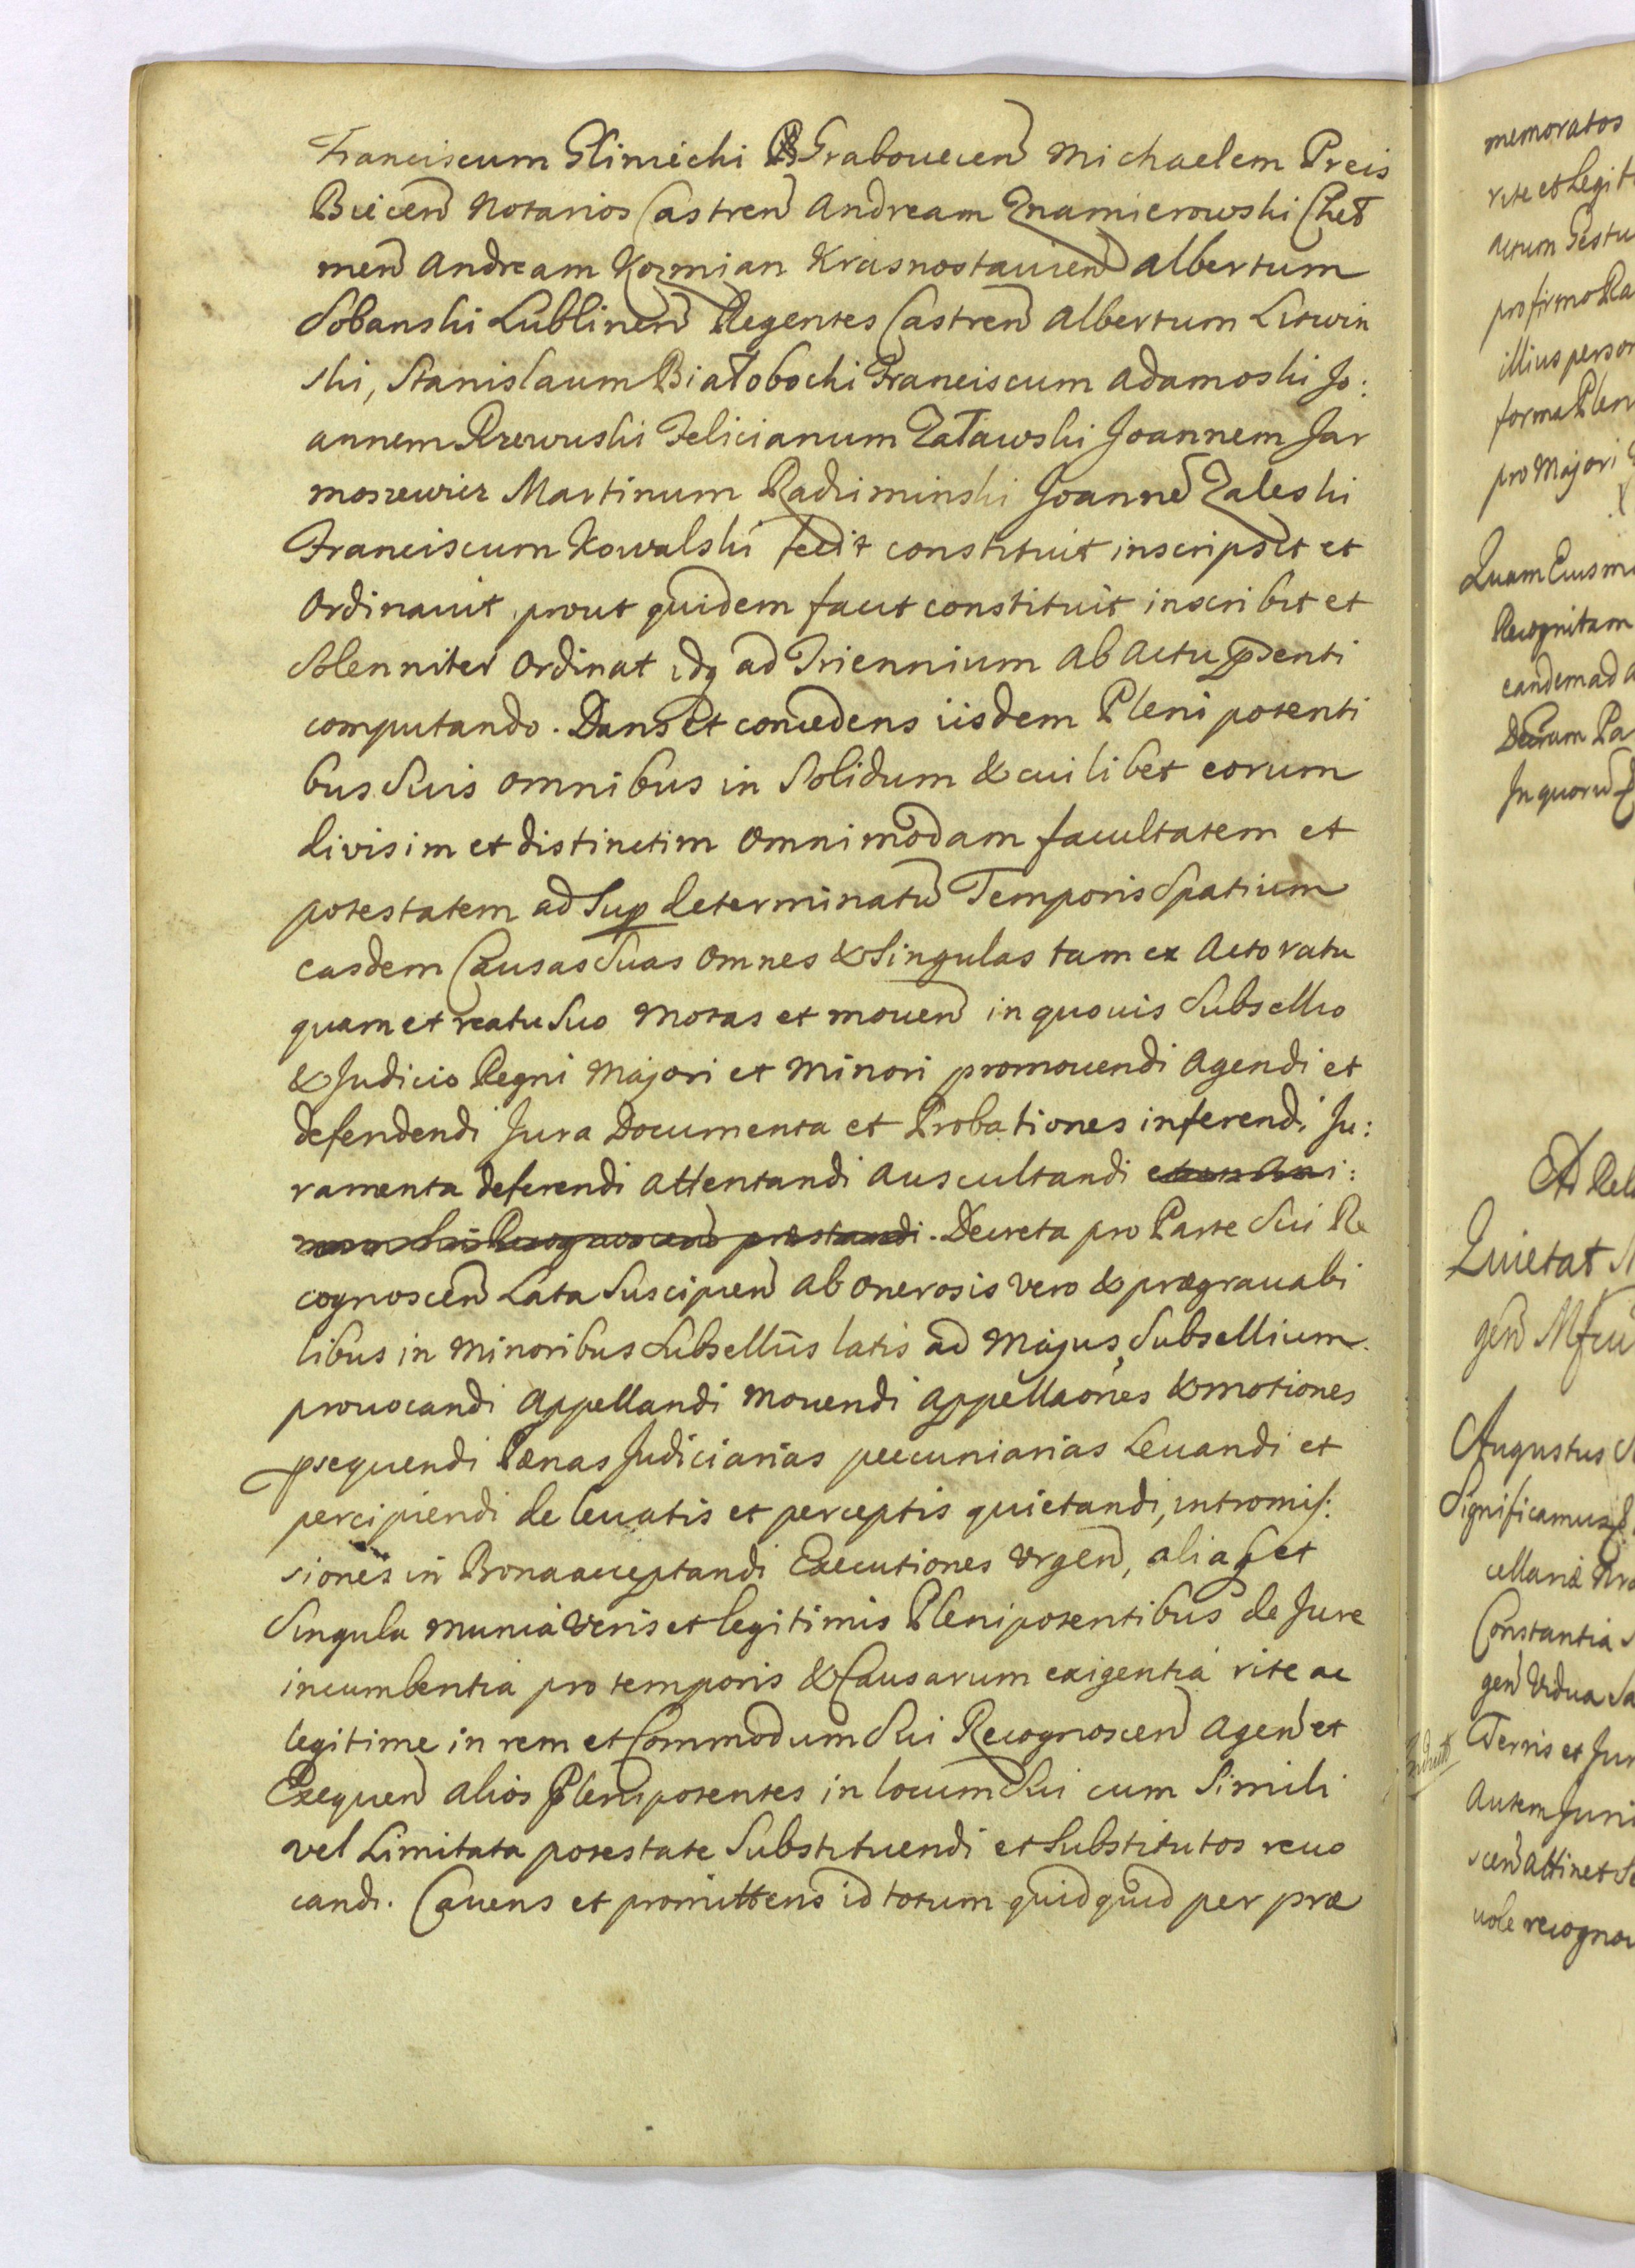 Franciscum Gliniecki Grabouecen Michaelem Preis
Biecen Notarios Castren Andream Znamierowski Cheł
men Andream Kozmian Krasnostauien Albertum
Sobanski Lublinen Regentes Castren Albertum Litwin
ski, Stanislaum Białobocki Franciscum Adamoski Jo:
annem Rzewuski Felicianum Załawski Joannem Jar
moszewicz Martinum Radziminski Joannē Zaleski
Franciscum Kowalski fecit constituit inscripsit et
Ordinauit prout quidem facit constituit inscribit et
Solenniter Ordinat idq ad Triennium ab actu p̄senti
computando. Dans et concedens iisdem Plenipotenti
bus Suis omnibus in Solidum & cuilibet eorum
divisim et distinctim omnimodam facultatem et
potestatem ad Sup determinatū Temporis Spatium
easdem Causas Suas omnes & Singulas tam ex Actoratu
quam et reatu Suo motas et mouen in quouis Subsellio
& Judicio Regni Majori et Minori promouendi Agendi et
defendendi Jura Documenta et Probationes inferendi Ju:
ramenta deferendi Attentandi Auscultandi
Decreta pro Parte Sui Re
cognoscen Lata Suscipien ab onerosis vero & prægrauabi
libus in Minoribus Subselliis latis ad Majus Subsellium
prouocandi Appellandi Mouendi appellaōnes & motiones
psequendi Pænas Judiciarias pecuniarias Leuandi et
percipiendi de leuatis et perceptis quietandi, intromis:
siones in Bona acceptandi Executiones Vrgen, aliaq et
Singula munia Veris et legitimis Plenipotentibus de Jure
incumbentia pro temporis & Causarum exigentia rite ac
legitime in rem et Commodum Sui Recognoscen Agen et
Exequen alios Plenipotentes in locum Sui cum Simili
vel Limitata potestate Substituendi et Substitutos reuo
candi. Cauens et promittens id totum quidquid per præ
memoratos
rite et Legit
actum Gestu
pro firmo Ra
illius person
forma Plen
pro Majori
Quam Eiusm
Recognitam
eandem ad A
Decram Pa
In quorū
Ad Rel
Quietat
gen
Augustus
Significamus
cellariæ
Constantia
gen Vidua
Terris et Jur
Autem Juri
scen attinet
uole recogno